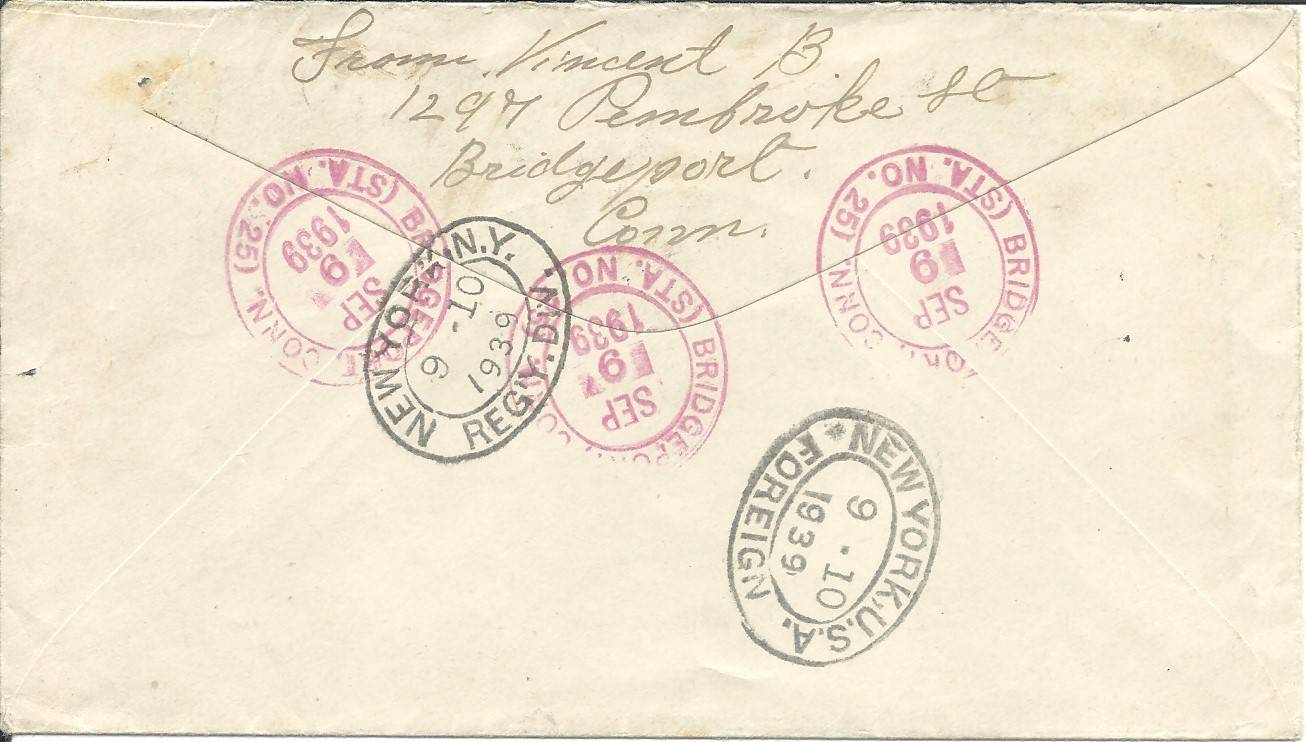 From Vincent B.
1297 Pembroke St
Bridgeport.
Conn.
BRIDGEPORT, CONN. (STA. NO. 25)
SEP
9
1939
NEW YORK, N.Y. REG'Y. DIV.
9-10
1939
BRIDGEPORT, CONN. (STA. NO. 25)
SEP
9
1939
BRIDGEPORT, CONN. (STA. NO. 25)
SEP
9
1939
NEW YORK, U.S.A. FOREIGN
9-10
1939